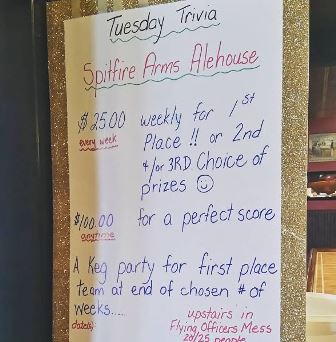 Tuesday Trivia
Spitfire Arms Alehouse
$25.00 weekly for 1st
every week
Place !! or 2nd
&/or 3RD Choice of
prizes ☺
$100.00 for a perfect score
anytime
A Keg party for first place
team at end of chosen # of
weeks....
dates:
upstairs in
Flying Officers Mess
20/25 people